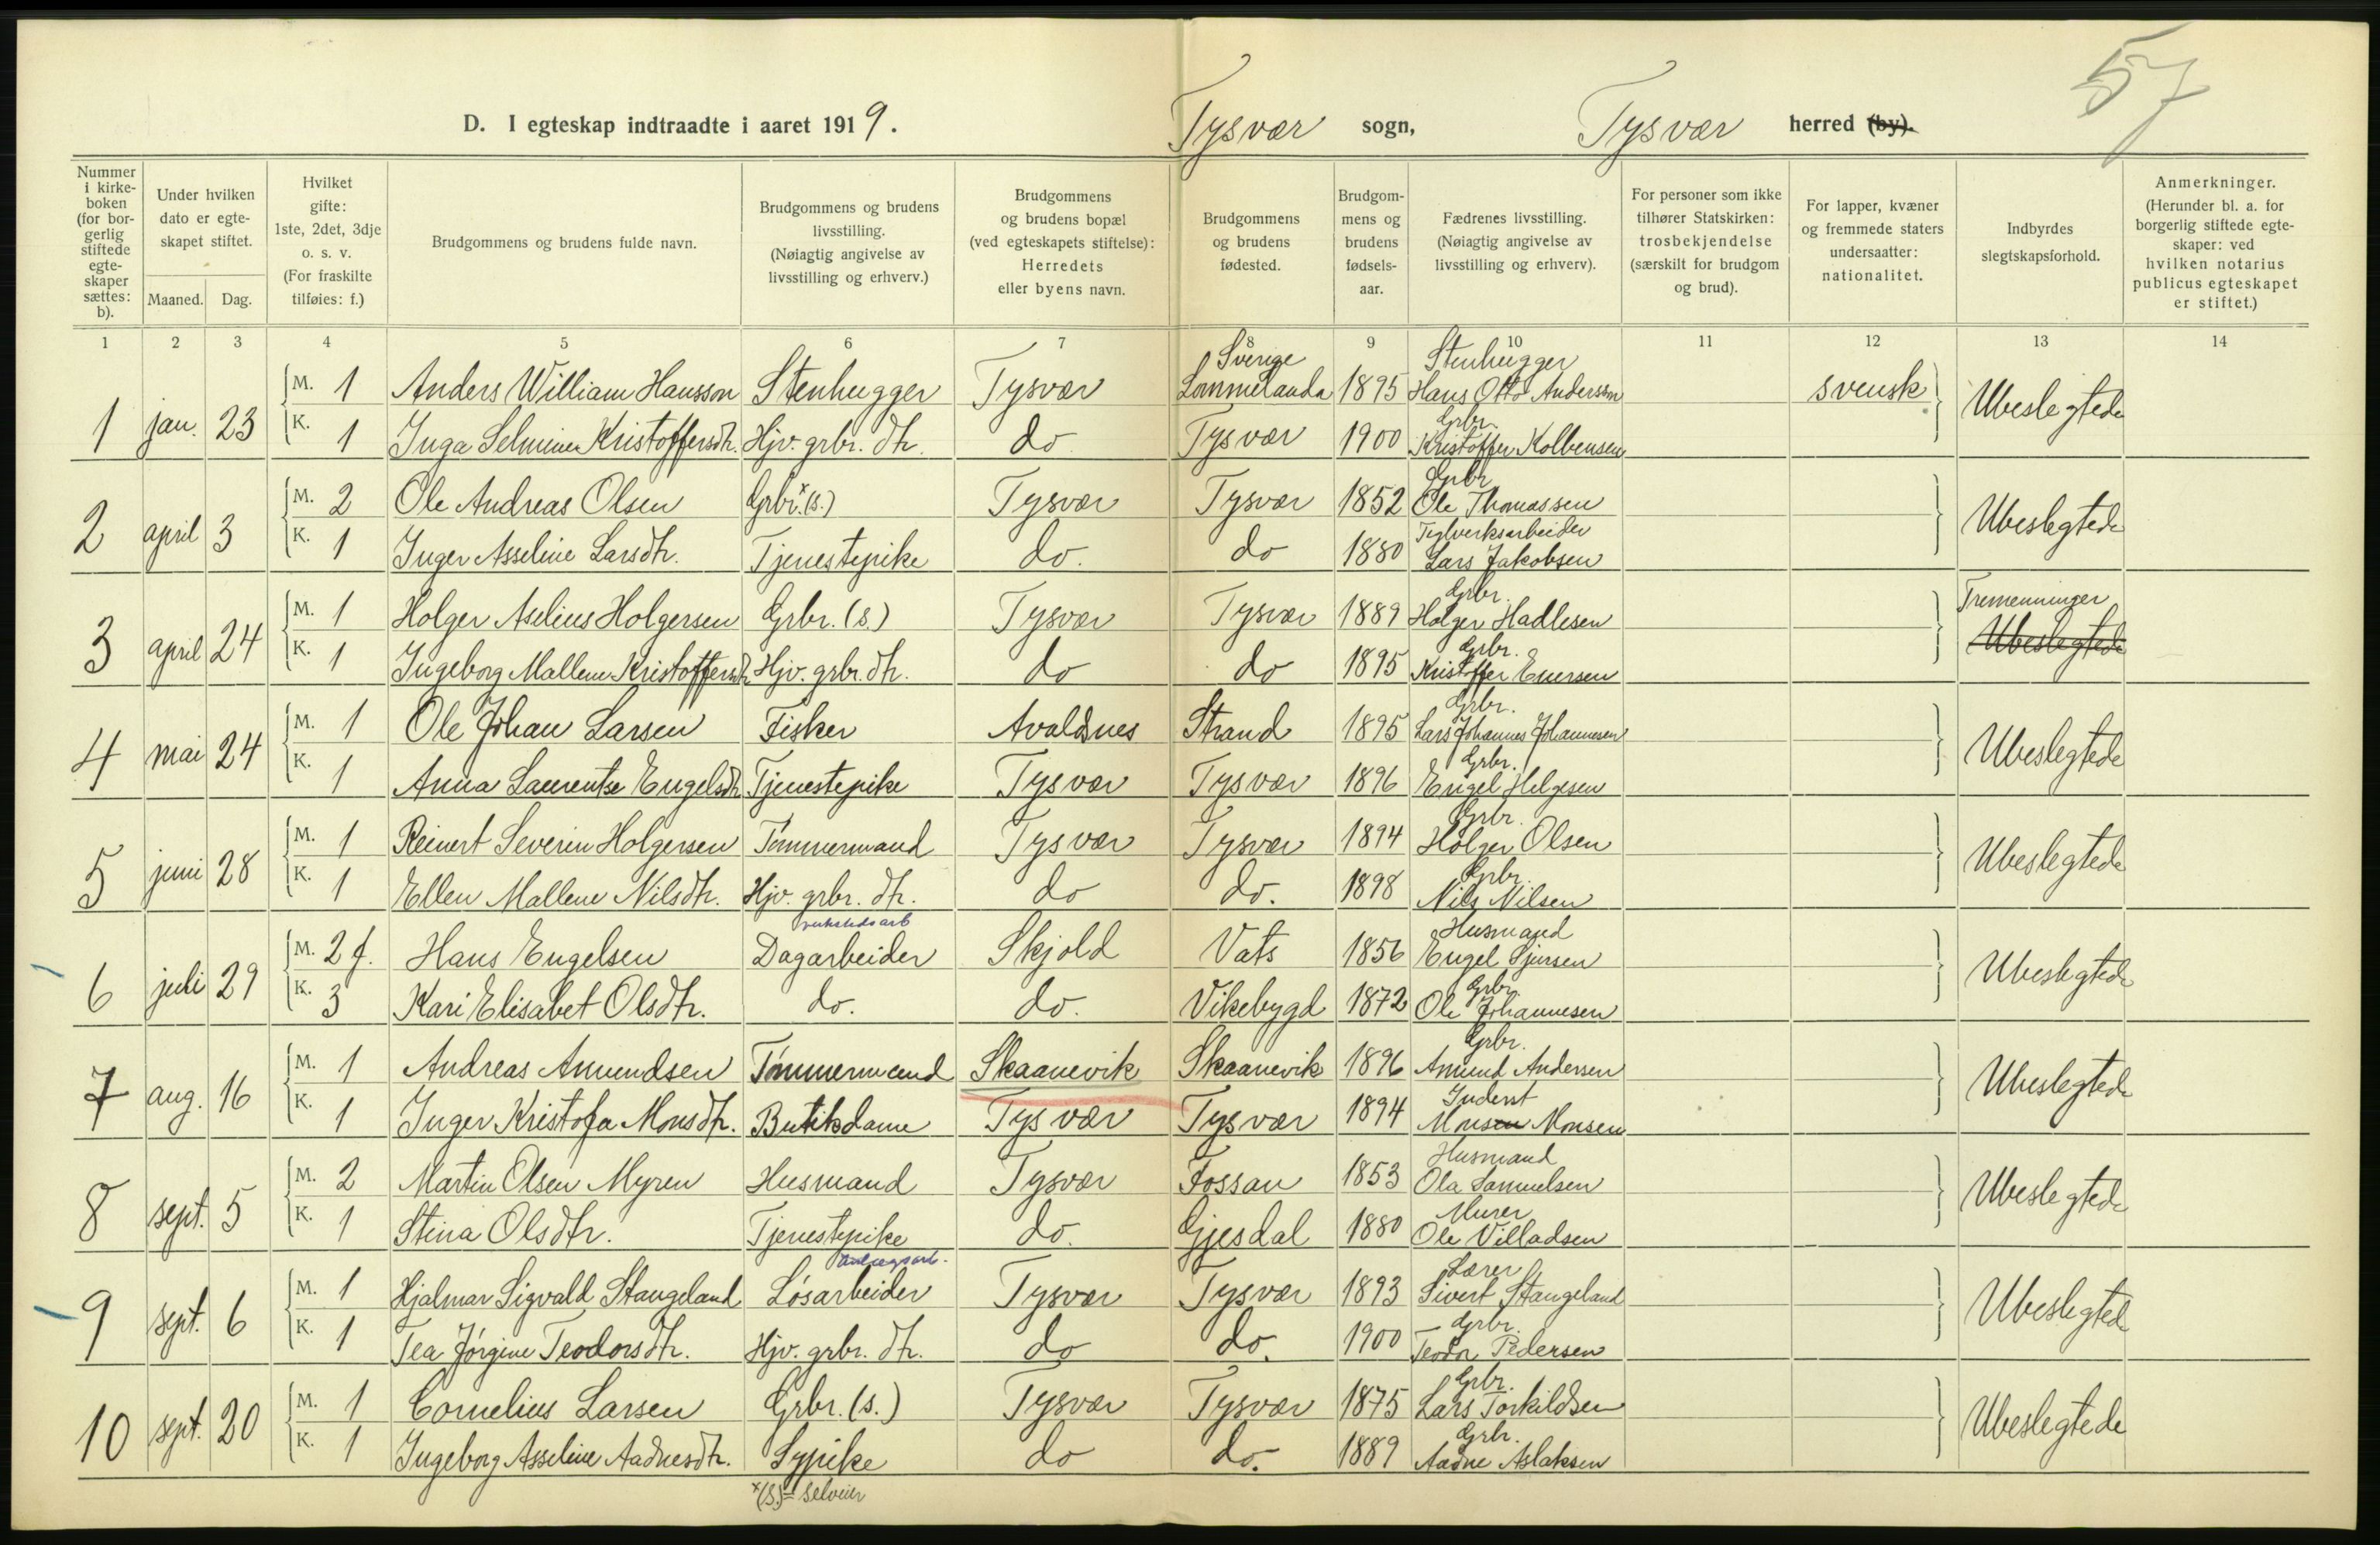 57
D. I egteskap indtraadte i aaret 1919. Tysvær sogn, Tysvær herred (by).
Nummer i kirkeboken (for borgerlig stiftede egteskaper sættes: b).
Under hvilken dato er egteskapet stiftet.
Maaned. Dag.
Hvilket gifte: 1ste, 2det, 3dje o. s. v. (For fraskilte tilføies: f.)
Brudgommens og brudens fulde navn.
Brudgommens og brudens livsstilling. (Nøiagtig angivelse av livsstilling og erhverv.)
Brudgommens og brudens bopæl (ved egteskapets stiftelse): Herredets eller byens navn.
Brudgommens og brudens fødested.
Brudgommens og brudens fødselsaar.
Fædrenes livsstilling. (Nøiagtig angivelse av livsstilling og erhverv).
For personer som ikke tilhører Statskirken: trosbekjendelse (særskilt for brudgom og brud).
For lapper, kvæner og fremmede staters undersaatter: nationalitet.
Indbyrdes slegtskapsforhold.
Anmerkninger. (Herunder bl. a. for borgerlig stiftede egteskaper: ved hvilken notarius publicus egteskapet er stiftet.)
1 2 3 4 5 6 7 8 9 10 11 12 13 14
Sverige Stenhugger
1 jan. 23 M. 1 Anders William Hansson Stenhugger Tysvær Lommelanda 1895 Hans Otto Andersson svensk Ubeslegtede
Grbr.
K. 1 Inga Selmine Kristoffersdtr. Hjv. grbr. dtr. do Tysvær 1900 Kristoffer Kolbensen
Grbr
2 april 3 M. 2 Ole Andreas Olsen Grbr.x (s.) Tysvær Tysvær 1852 Ole Thomassen Ubeslegtede
Teglverksarbeider
K. 1 Inger Asseline Larsdtr. Tjenestepike do. do 1880 Lars Jakobsen
Grbr. Tremenninger
3 april 24 M. 1 Holger Aselius Holgersen Grbr. (s.) Tysvær Tysvær 1889 Holger Hadlesen Ubeslegtede
Grbr.
K. 1 Ingeborg Mallene Kristoffersdtr Hjv. grbr. dtr. do do 1895 Kristoffer Enersen
Grbr.
4 mai 24 M. 1 Ole Johan Larsen Fisker Avaldsnes Strand 1895 Lars Johannes Johannesen Ubeslegtede
Grbr.
K. 1 Anna Laurentse Engelsdtr Tjenestepike Tysvær Tysvær 1896 Engel Helgesen
Grbr.
5 juni 28 M. 1 Reinert Severin Holgersen Tømmermand Tysvær Tysvær 1894 Holger Olsen Ubeslegtede
Grbr.
K. 1 Ellen Mallene Nilsdtr. Hjv. grbr. dtr. do do. 1898 Nils Nilsen
verkstedsarb Husmand
6 juli 29 M. 2 f. Hans Engelsen Dagarbeider Skjold Vats 1856 Engel Sjursen Ubeslegtede
Grbr.
K. 3 Kari Elisabet Olsdtr. do. do. Vikebygd 1872 Ole Johannesen
Grbr.
7 aug. 16 M. 1 Andreas Amundsen Tømmermand Skaanevik Skaanevik 1896 Amund Andersen Ubeslegtede
Inderst
K. 1 Inger Kristofa Monsdtr. Butiksdame Tysvær Tysvær 1894 Monsen Monsen
Husmand
8 sept. 5 M. 2 Martin Olsen Myren Husmand Tysvær Fossan 1853 Ola Samuelsen Ubeslegtede
Murer
K. 1 Stina Olsdtr. Tjenestepike do. Gjesdal 1880 Ole Villadsen
Lærer
9 sept. 6 M. 1 Hjalmar Sigvald Stangeland Løsarbeider Tysvær Tysvær 1893 Sivert Stangeland Ubeslegtede
Grbr.
K. 1 Tea Jørgine Teodorsdtr. Hjv. grbr. dtr. do do. 1900 Teodor Pedersen
Grbr.
10 sept. 20 M. 1 Cornelius Larsen Grbr. (s.) Tysvær Tysvær 1875 Lars Torkildsen Ubeslegtede
Grbr.
K. 1 Ingeborg Asseline Aadnesdtr. Sypike do do. 1889 Aadne Aslaksen
x(s.) = selveier